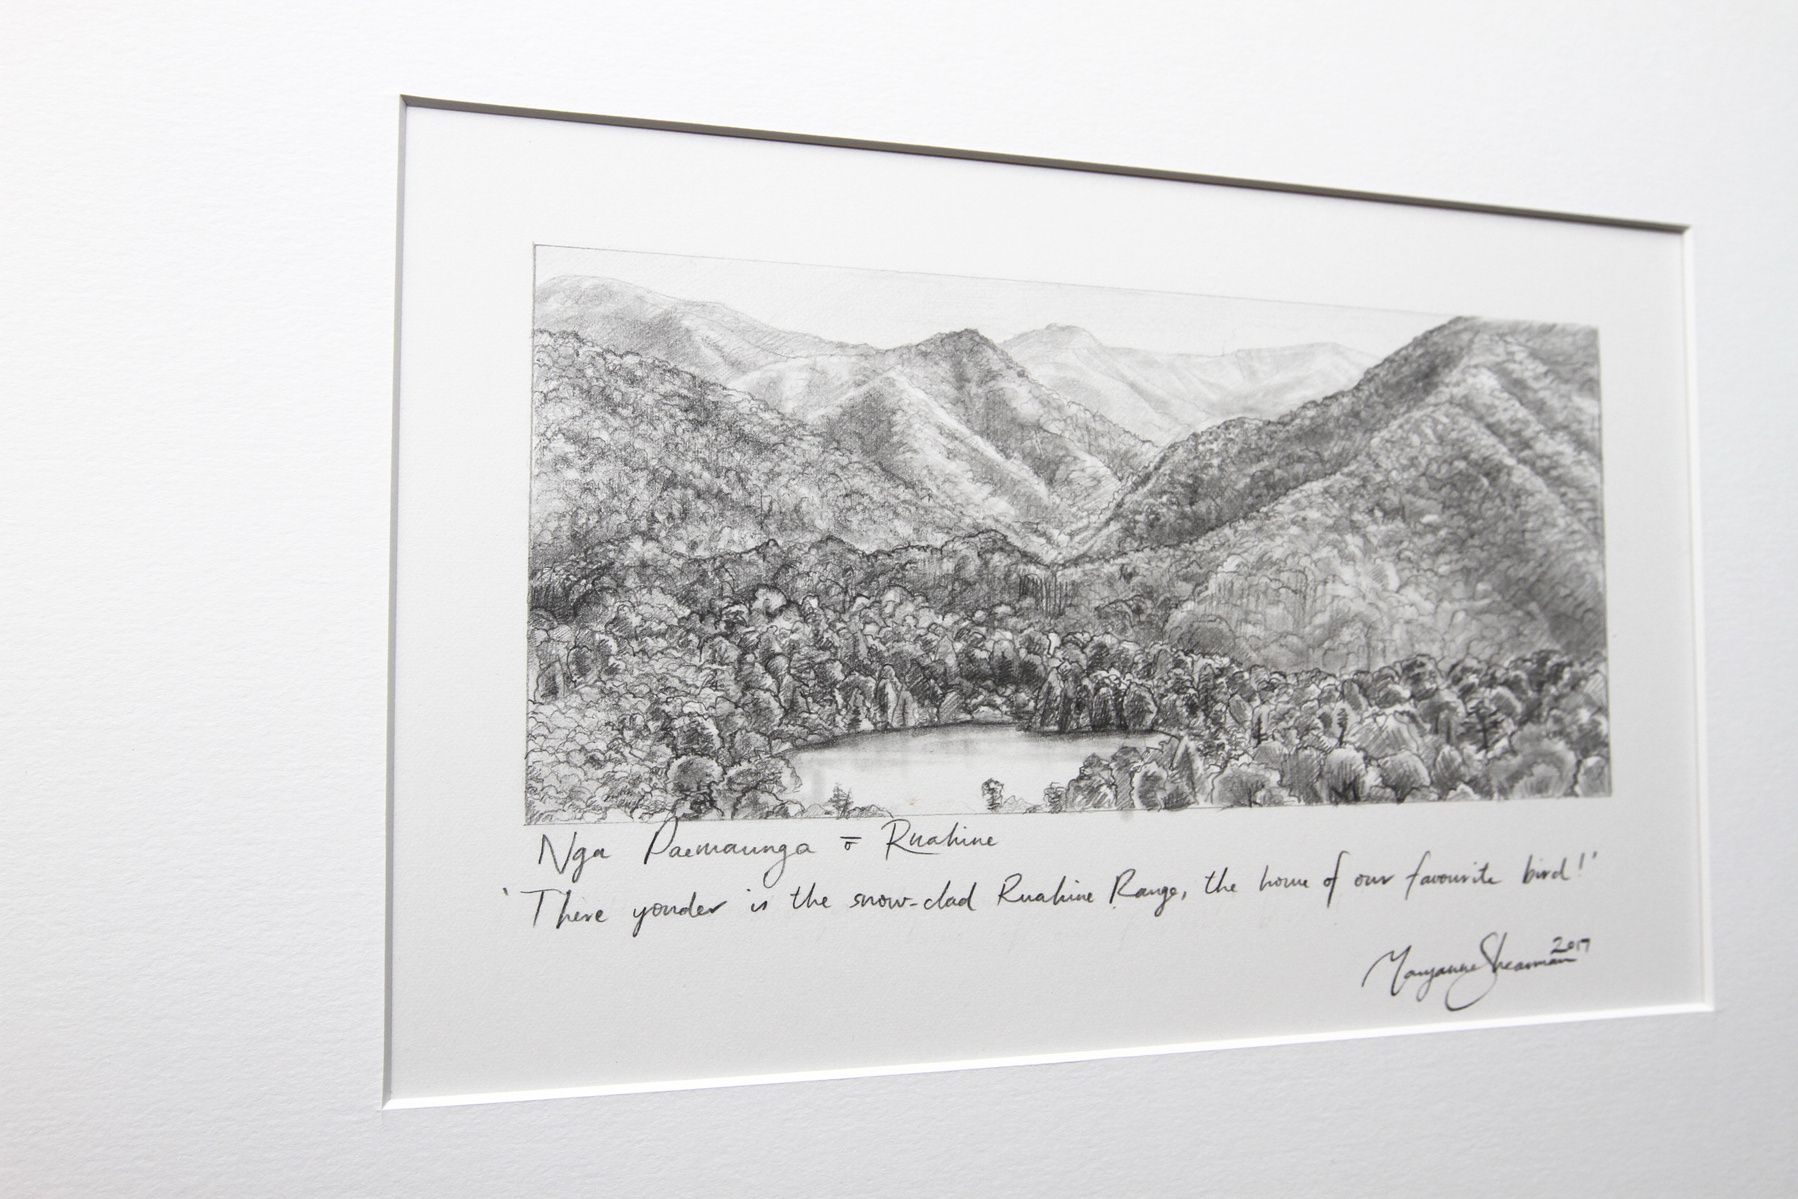 Nga Paemaunga ō Ruahine
'There yonder is the snow-clad Ruahine Range, the home of our favourite bird!'
Maryanne Shearman 2017